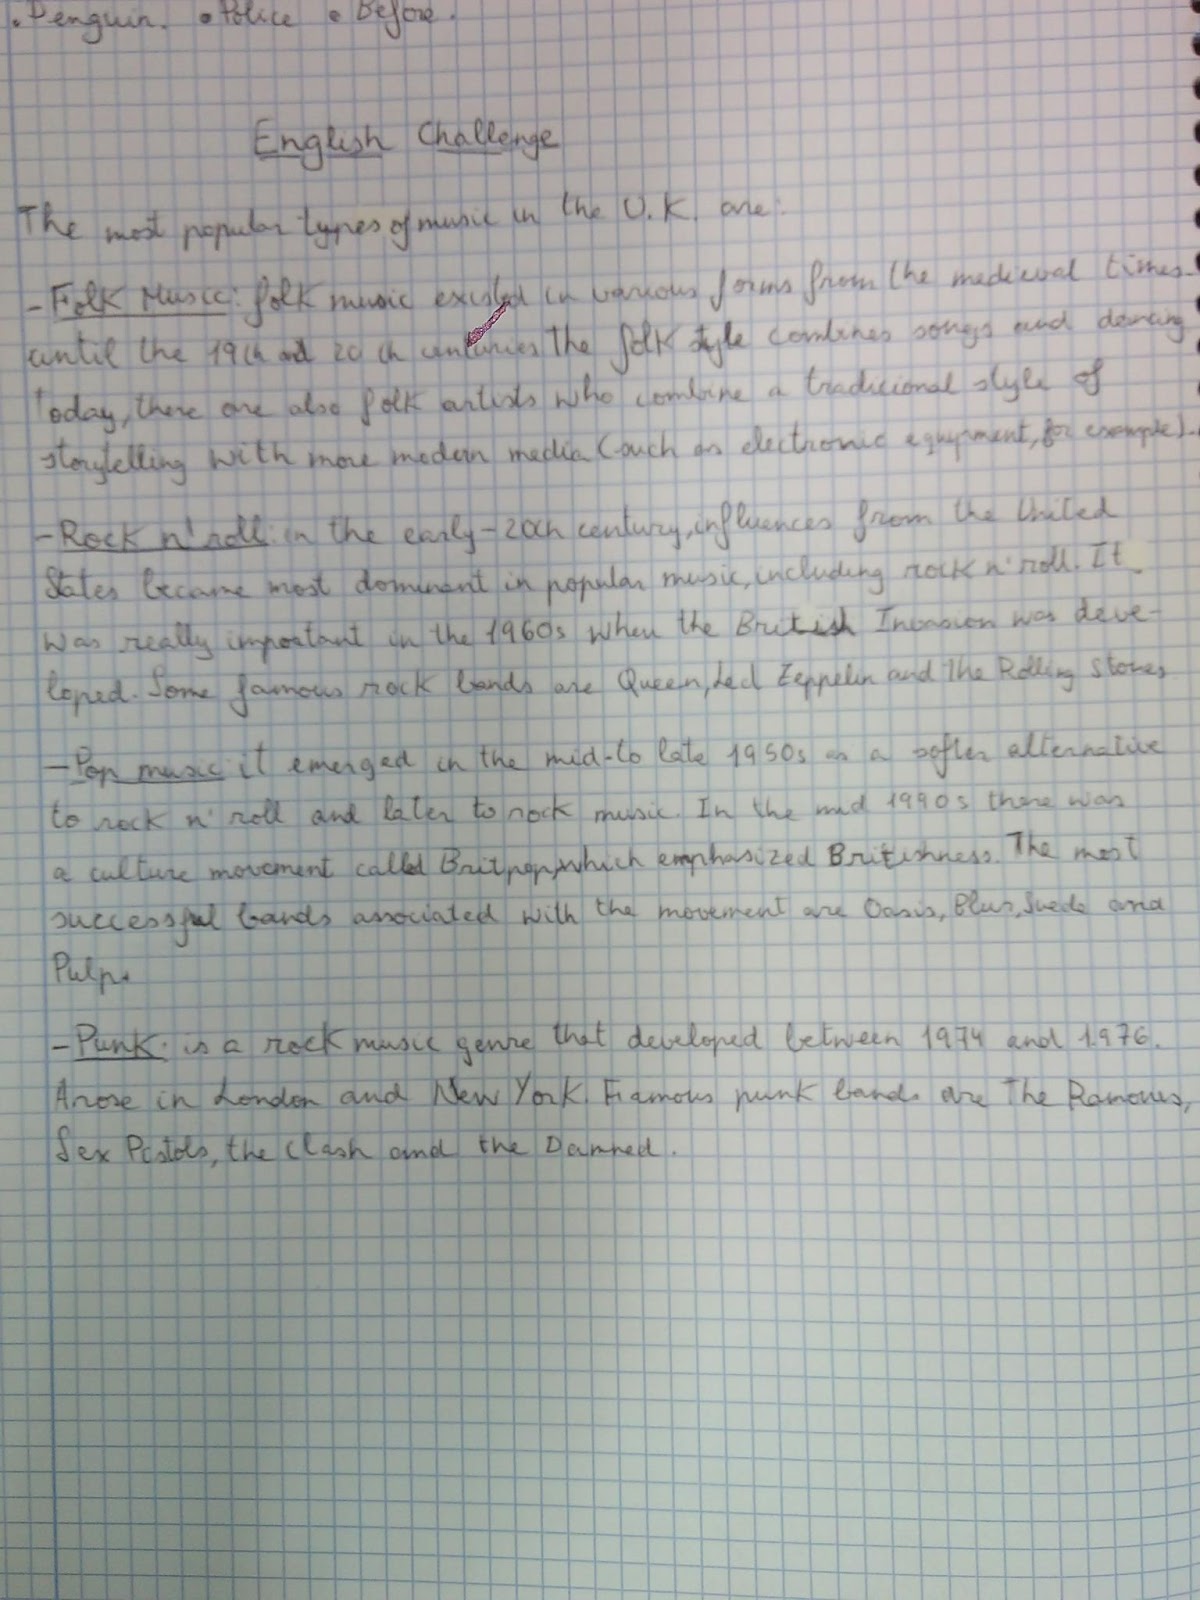 • Penguin. • Police • Before.
English Challenge
The most popular types of music in the U.K. are:
- Folk Music: folk music existed in various forms from the medieval times
until the 19th and 20th centuries. The folk style combines songs and dancing
Today, there are also folk artists who combine a tradicional style of
storytelling with more modern media (such as electronic equipment, for example).
- Rock n' roll: in the early-20th century, influences from the United
States became most dominant in popular music, including rock n' roll. It
was really important in the 1960s when the British Invasion was deve-
loped. Some famous rock bands are Queen, Led Zeppelin and The Rolling Stones
- Pop music it emerged in the mid-to late 1950s as a softer alternative
to rock n' roll and later to rock music. In the mid 1990s there was
a culture movement called Britpop, which emphasized Britishness. The most
successful bands associated with the movement are Oasis, Blur, Suede and
Pulp.
- Punk: is a rock music genre that developed between 1974 and 1976.
Arose in London and New York. Famous punk bands are The Ramones,
Sex Pistols, the Clash and the Damned.